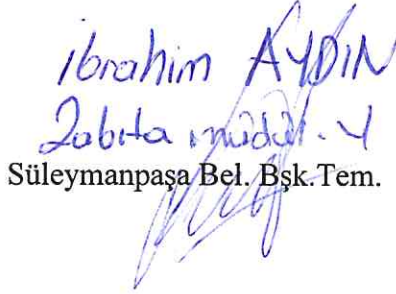 İbrahim AYDIN
Zabıta müdür. Y
Süleymanpaşa Bel. Bşk.Tem.